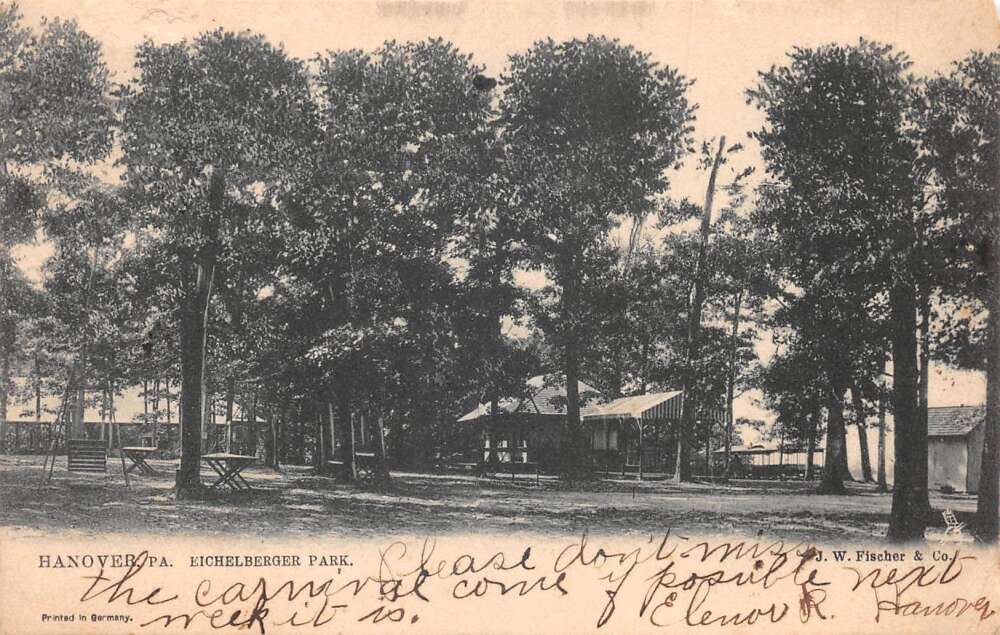 HANOVER, PA. EICHELBERGER PARK.
J. W. Fischer & Co.
Please don't miss
the carnival come if possible next
week it is. Elenor R. Hanover
Printed in Germany.